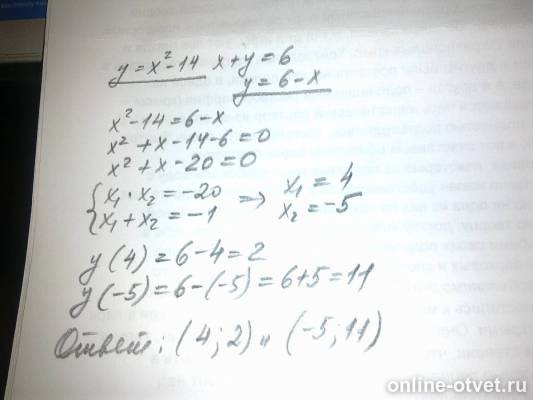 y = x² - 14   x + y = 6
y = 6 - x
x² - 14 = 6 - x
x² + x - 14 - 6 = 0
x² + x - 20 = 0
{ x₁ · x₂ = -20   ⇒   x₁ = 4
x₁ + x₂ = -1   x₂ = -5
y(4) = 6 - 4 = 2
y(-5) = 6 - (-5) = 6 + 5 = 11
Ответ: (4; 2) и (-5; 11)
online-otvet.ru